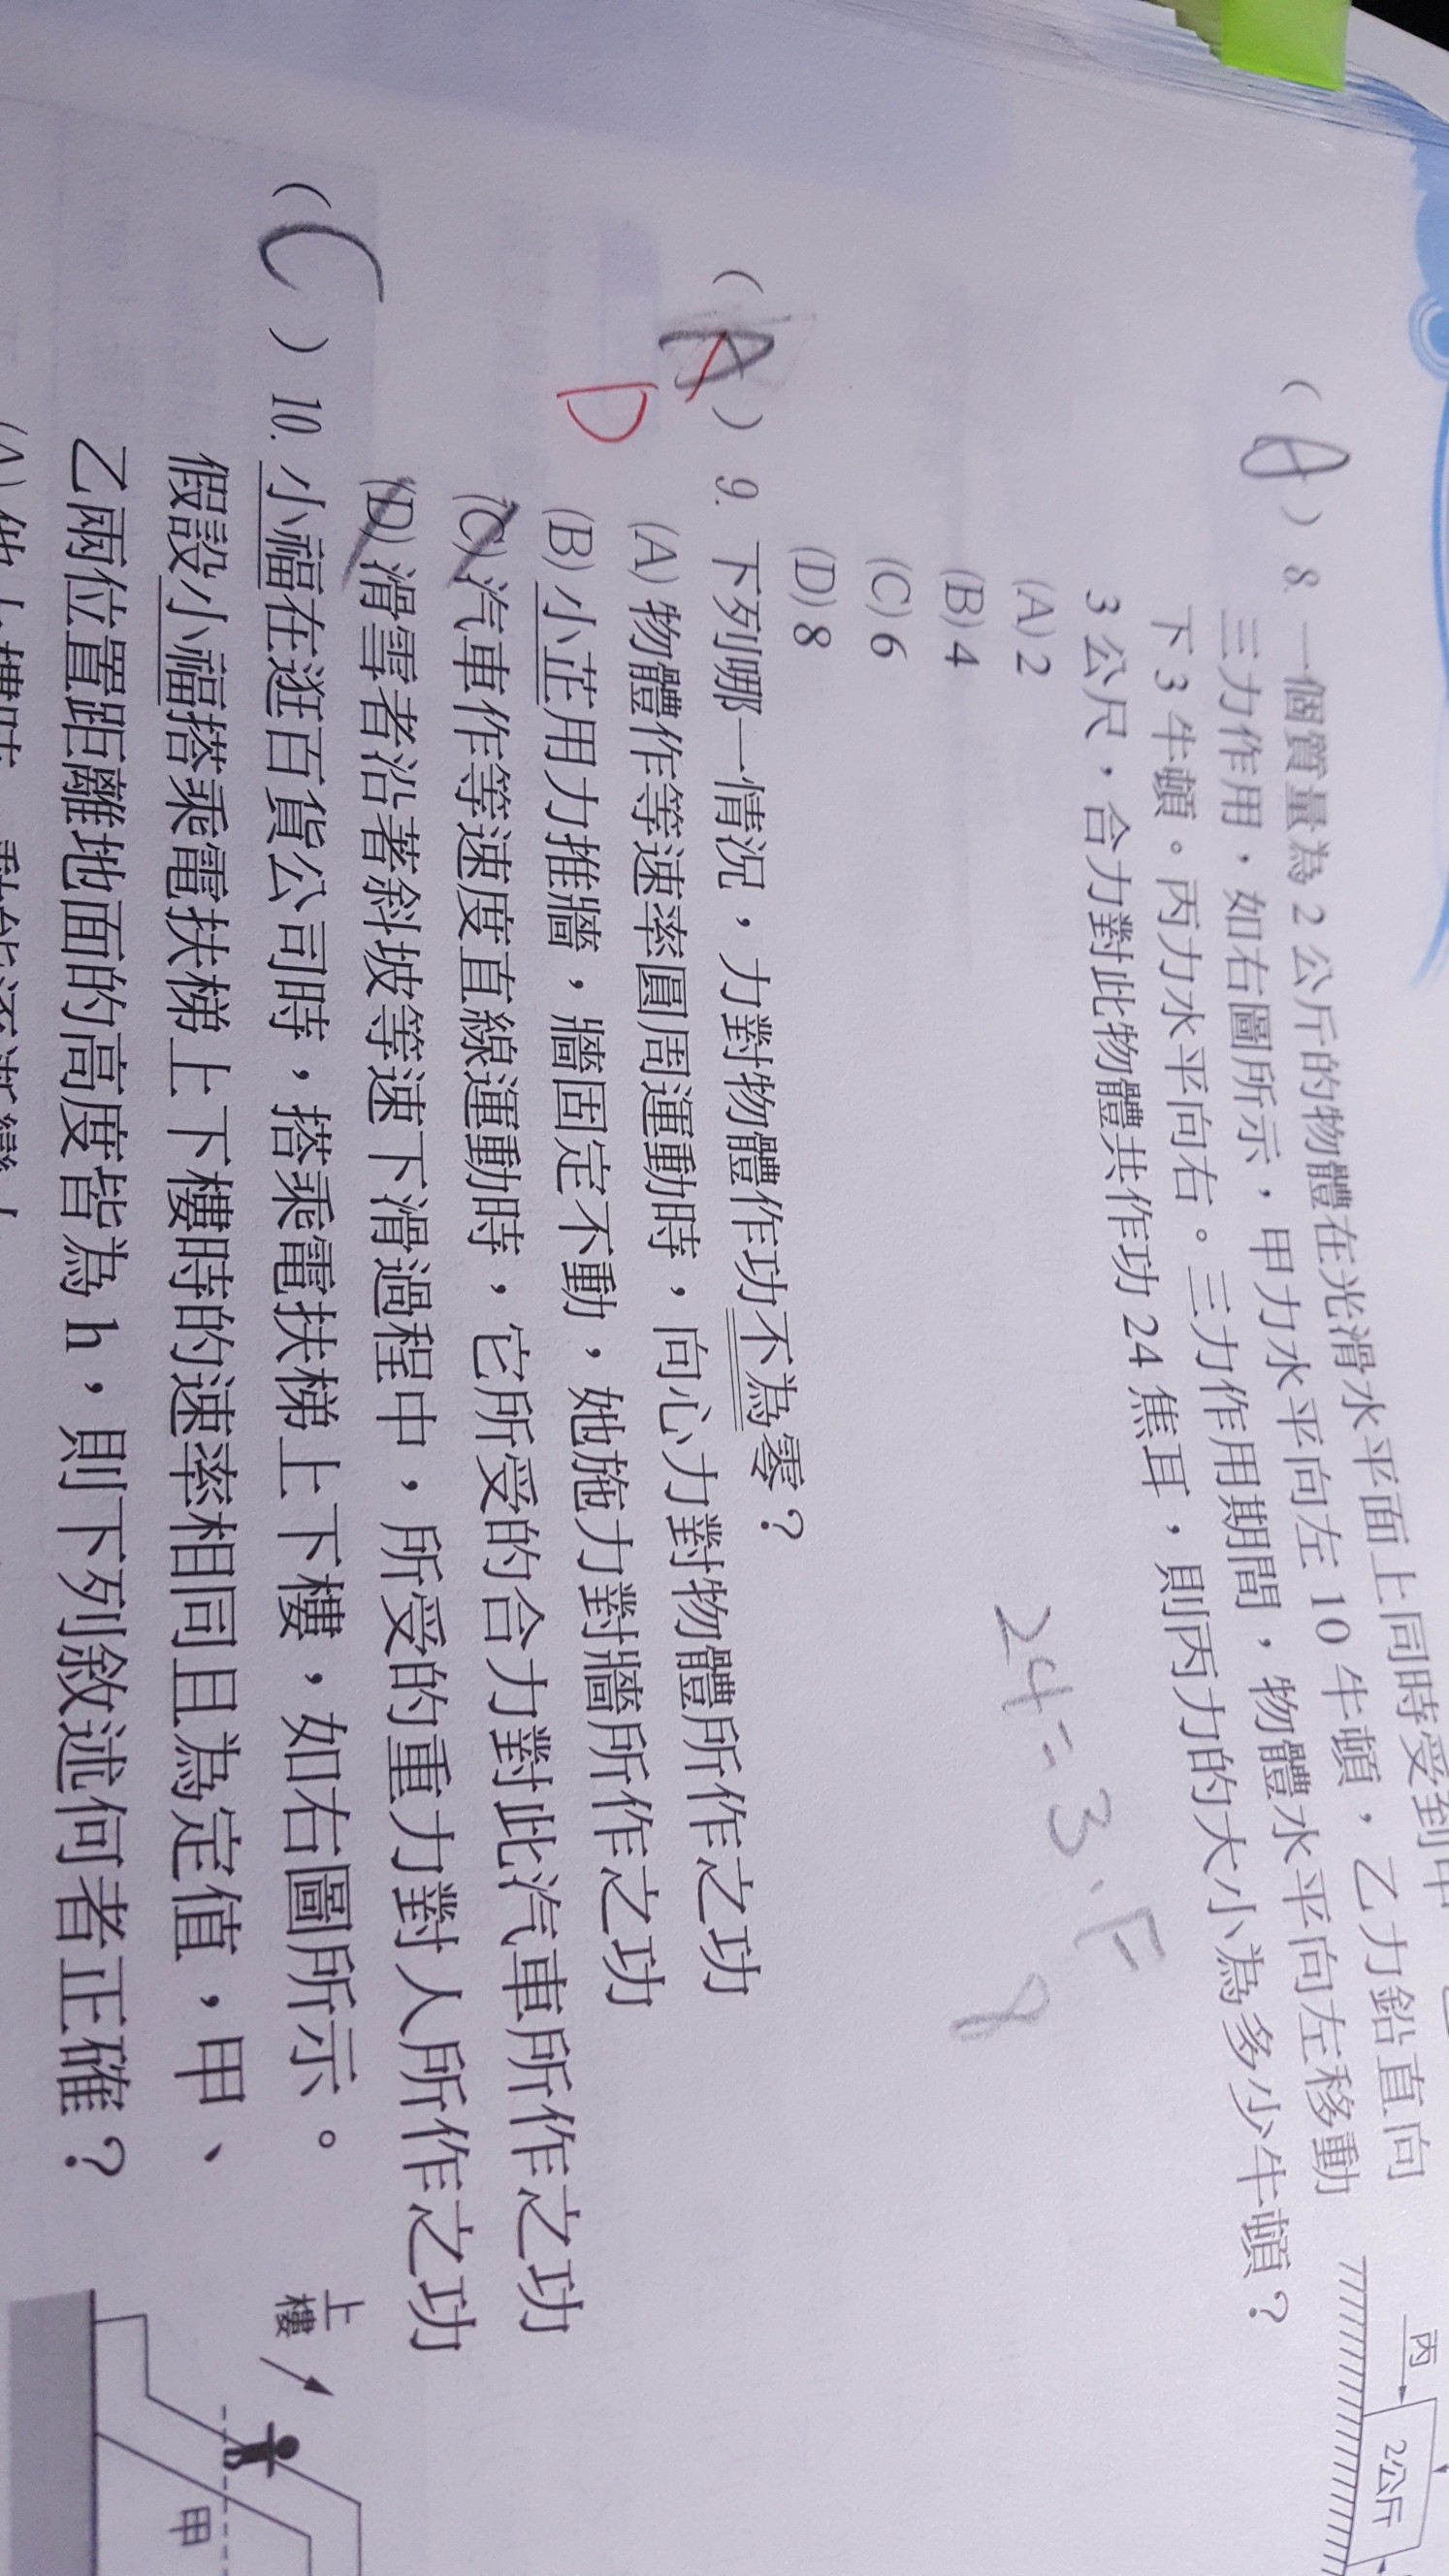 (A) 8. 一個質量為 2 公斤的物體在光滑水平面上同時受到甲
三力作用，如右圖所示，甲力水平向左 10 牛頓，乙力鉛直向
下 3 牛頓。丙力水平向右。三力作用期間，物體水平向左移動
3 公尺，合力對此物體共作功 24 焦耳，則丙力的大小為多少牛頓？
(A) 2
(B) 4
(C) 6
(D) 8
24=3.F
8
丙
2公斤
(A) 9. 下列哪一情況，力對物體作功不為零？
D
(A) 物體作等速率圓周運動時，向心力對物體所作之功
(B) 小芷用力推牆，牆固定不動，她施力對牆所作之功
(C) 汽車作等速度直線運動時，它所受的合力對此汽車所作之功
(D) 滑雪者沿著斜坡等速下滑過程中，所受的重力對人所作之功
(C) 10. 小福在逛百貨公司時，搭乘電扶梯上下樓，如右圖所示。
假設小福搭乘電扶梯上下樓時的速率相同且為定值，甲、
乙兩位置距離地面的高度皆為 h，則下列敘述何者正確？
上樓
甲